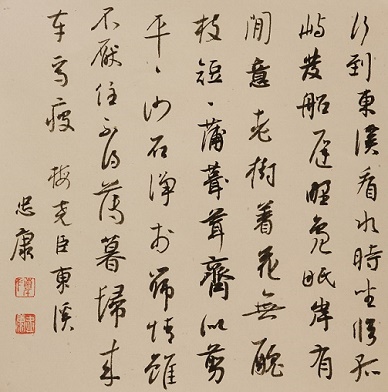 行到東溪看水時坐臨孤
嶼發船遲野鳧眠岸有
閒意老樹着花無醜
枝短、蒲葺茸齊似剪
平、沙石淨於篩情雖
不厭住不得薄暮歸來
車馬瘦 梅堯臣東溪
忠康